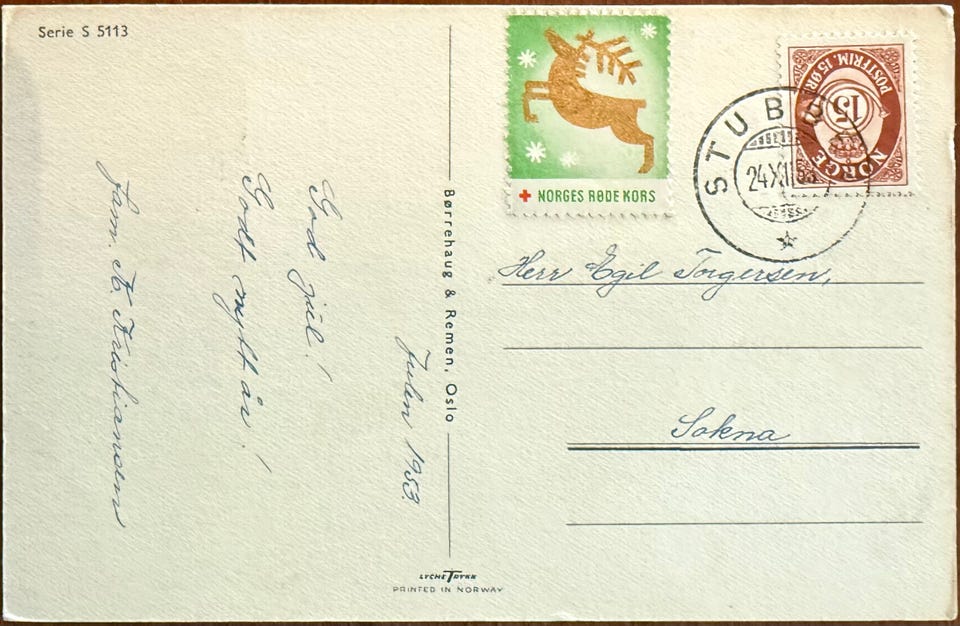 Serie S 5113
Julen 1953.
God jul!
Godt nytt år!
Fam. A. Kristiansen
Børrehaug & Remen, Oslo
LYCHE TRYKK
PRINTED IN NORWAY
NORGES RØDE KORS
POSTFRIM. 15 ØRE
15
NORGE
STUB
24 XII 53
Herr Egil Torgersen,
Sokna